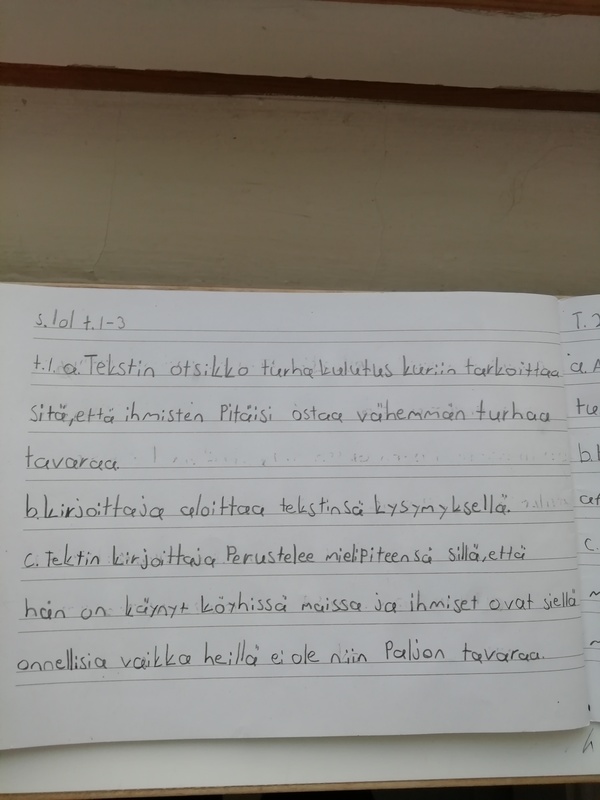 s.101 t.1-3
t.1. a. Tekstin otsikko turha kulutus kuriin tarkoittaa
sitä, että ihmisten Pitäisi ostaa vähemmän turhaa
tavaraa
b. kirjoittaja aloittaa tekstinsä kysymyksellä.
c. Tektin kirjoittaja Perustelee mielipiteensä sillä, että
hän on käynyt köyhissä maissa ja ihmiset ovat siellä
onnellisia vaikka heillä ei ole niin Paljon tavaraa.
T. 2
a.
b.
c.